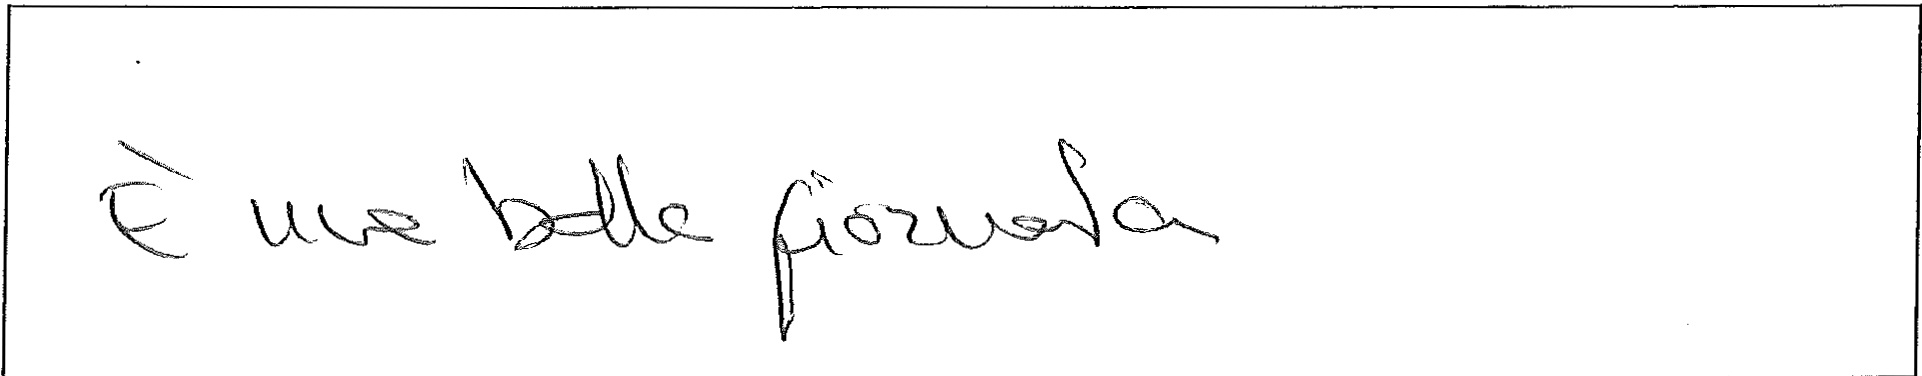 È una bella giornata